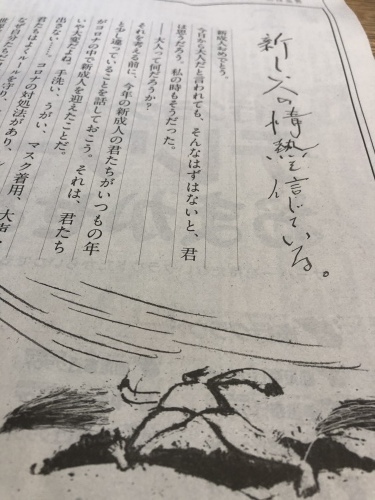 新しい人の情熱を信じている。
新成人おめでとう。
今日から大人だと言われても、そんなはずはないと、君
は思うだろう。私の時もそうだった。
――大人って何だろうか?
それを考える前に、今年の新成人の君たちがいつもの年
と少し違っていることを話しておこう。それは、君たち
がコロナの中で新成人を迎えたことだ。
いや大変だよね。手洗い、うがい、マスク着用、大声
出さない――。コロナの対処法があり、
君たちはよくルールを守り、
なぜ自分たち